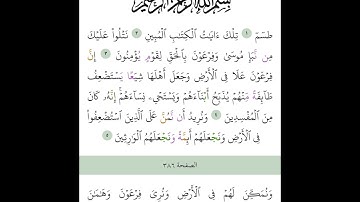 بِسْمِ ٱللَّهِ ٱلرَّحْمَٰنِ ٱلرَّحِيمِ
طسٓمٓ ١ تِلْكَ ءَايَٰتُ ٱلْكِتَٰبِ ٱلْمُبِينِ ٢ نَتْلُوا۟ عَلَيْكَ
مِن نَّبَإِ مُوسَىٰ وَفِرْعَوْنَ بِٱلْحَقِّ لِقَوْمٍ يُؤْمِنُونَ ٣ إِنَّ
فِرْعَوْنَ عَلَا فِى ٱلْأَرْضِ وَجَعَلَ أَهْلَهَا شِيَعًا يَسْتَضْعِفُ
طَآئِفَةً مِّنْهُمْ يُذَبِّحُ أَبْنَآءَهُمْ وَيَسْتَحْىِۦ نِسَآءَهُمْ إِنَّهُۥ كَانَ
مِنَ ٱلْمُفْسِدِينَ ٤ وَنُرِيدُ أَن نَّمُنَّ عَلَى ٱلَّذِينَ ٱسْتُضْعِفُوا۟
فِى ٱلْأَرْضِ وَنَجْعَلَهُمْ أَئِمَّةً وَنَجْعَلَهُمُ ٱلْوَٰرِثِينَ ٥
الصفحة ٣٨٦
وَنُمَكِّنَ لَهُمْ فِى ٱلْأَرْضِ وَنُرِىَ فِرْعَوْنَ وَهَٰمَٰنَ